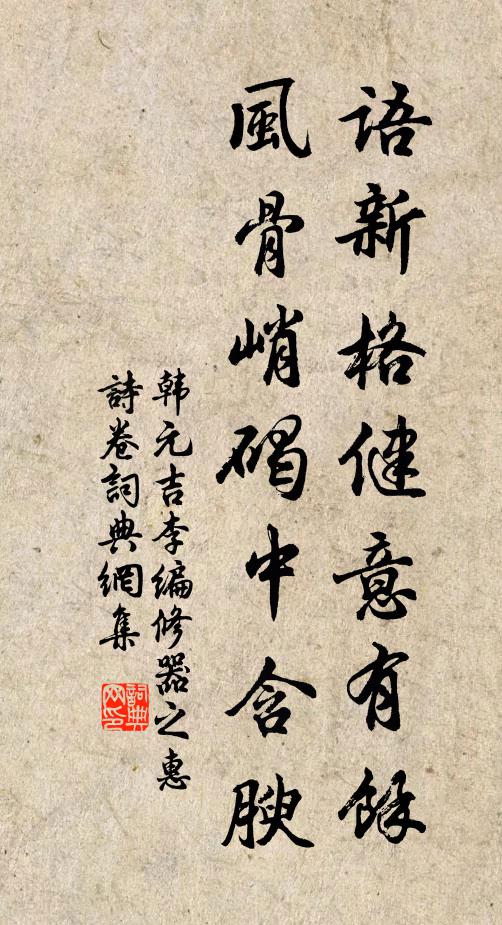 語新格健意有餘
風骨峭碣中含腴
韩元吉李编修器之惠
詩卷詞典網集
詞典网印